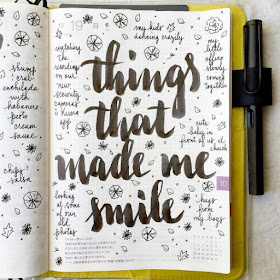 19
月
my kids
dancing crazily
watching
the
recording
on our
new
security
camera's
iPhone
app
my
little
office
slowly
coming
together
things
that
made me
smile
cute
baby in
front of us at
church
looking
at some
of our
old
photos
hugs
from
my boys
10
shrimp
&
crab
enchilada
with
habanero
pesto
cream
sauce
chips
&
salsa